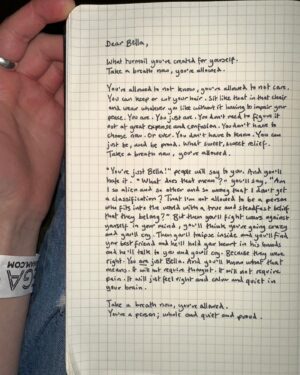 Dear Bella,
What turmoil you've created for yourself.
Take a breath now, you're allowed.
You're allowed to not know, you're allowed to not care.
You can keep or cut your hair. Sit like that in that chair
and wear whatever you like without it having to impair your
peace. You are. You just are. You don't need to figure it
out at great expense and confusion. You don't have to
choose now. Or ever. You don't have to know. You can
just be, and be proud. What sweet, sweet relief.
Take a breath now, you're allowed.
"You're just Bella!" people will say to you. And you'll
hate it. "What does that mean?" you'll say, "Am
I so alien and so other and so wrong that I don't get
a classification? That I'm not allowed to be a person
who fits into the world with a true and steadfast belief
that they belong?" But then you'll fight wars against
yourself in your mind, you'll think you're going crazy
and you'll cry. Then you'll fall inside, and you'll find
your best friend and he'll hold your heart in his hands
and he'll talk to you and you'll cry. Because they were
right. You are just Bella. And you'll know what that
means. It will not require thought. It will not require
pain. It will just feel right and calm and quiet in
your brain.
Take a breath now, you're allowed.
You're a person; whole and quiet and proud.
GA
M.COM